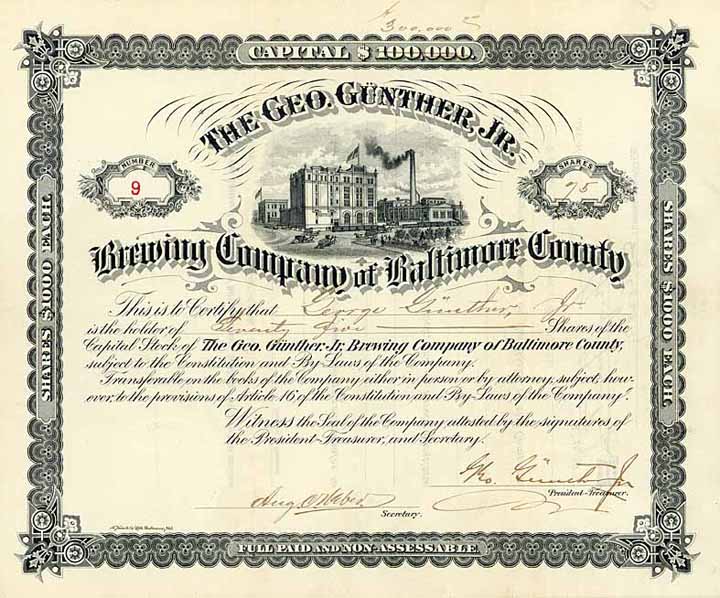 $300,000 00
CAPITAL $100,000.
THE GEO. GÜNTHER, JR.
NUMBER
9
SHARES
75
Brewing Company of Baltimore County
This is to Certify that George Günther, Jr
is the holder of Seventy five Shares of the
Capital Stock of The Geo. Günther-Jr. Brewing Company of Baltimore County,
subject to the Constitution and By-Laws of the Company.
Transferable on the books of the Company either in person or by attorney, subject, how-
ever, to the provisions of Article 16 of the Constitution and By-Laws of the Company.
Witness the Seal of the Company attested by the signatures of
the President-Treasurer, and Secretary.
Geo. Günther Jr
President-Treasurer.
Aug
Secretary.
FULL PAID AND NON-ASSESSABLE.
SHARES $1000 EACH.
SHARES $1000 EACH.